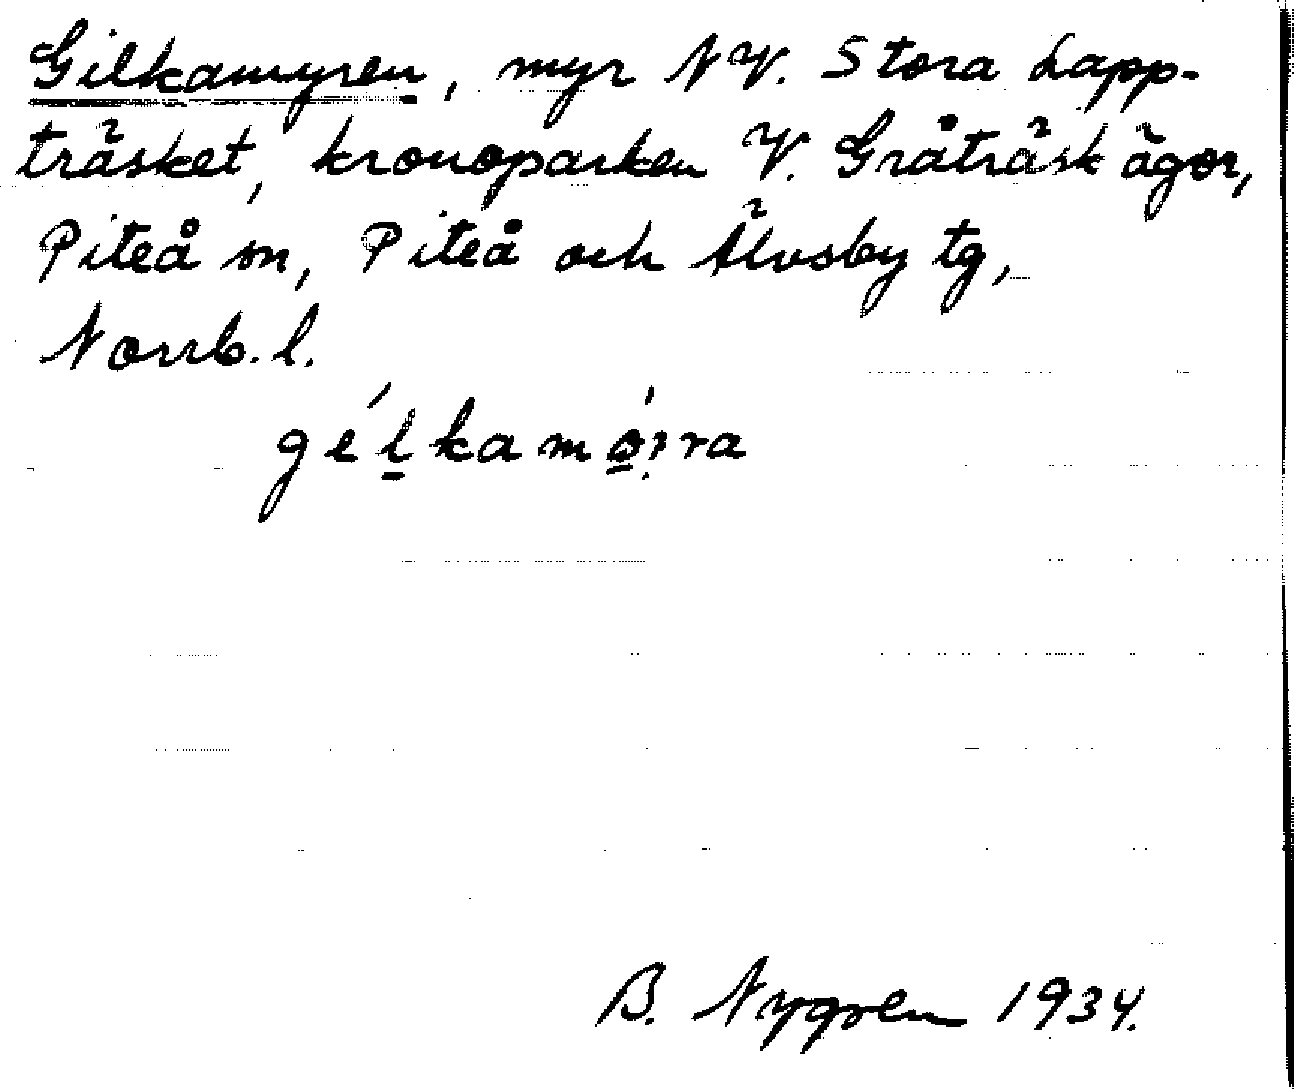 Gilkamyren, myr NV. Stora Lapp-
träsket, kronoparken V. Gråträsk ägor,
Piteå sn, Piteå och Älvsby tg,
Norrb. l.
B. Nygren 1934.